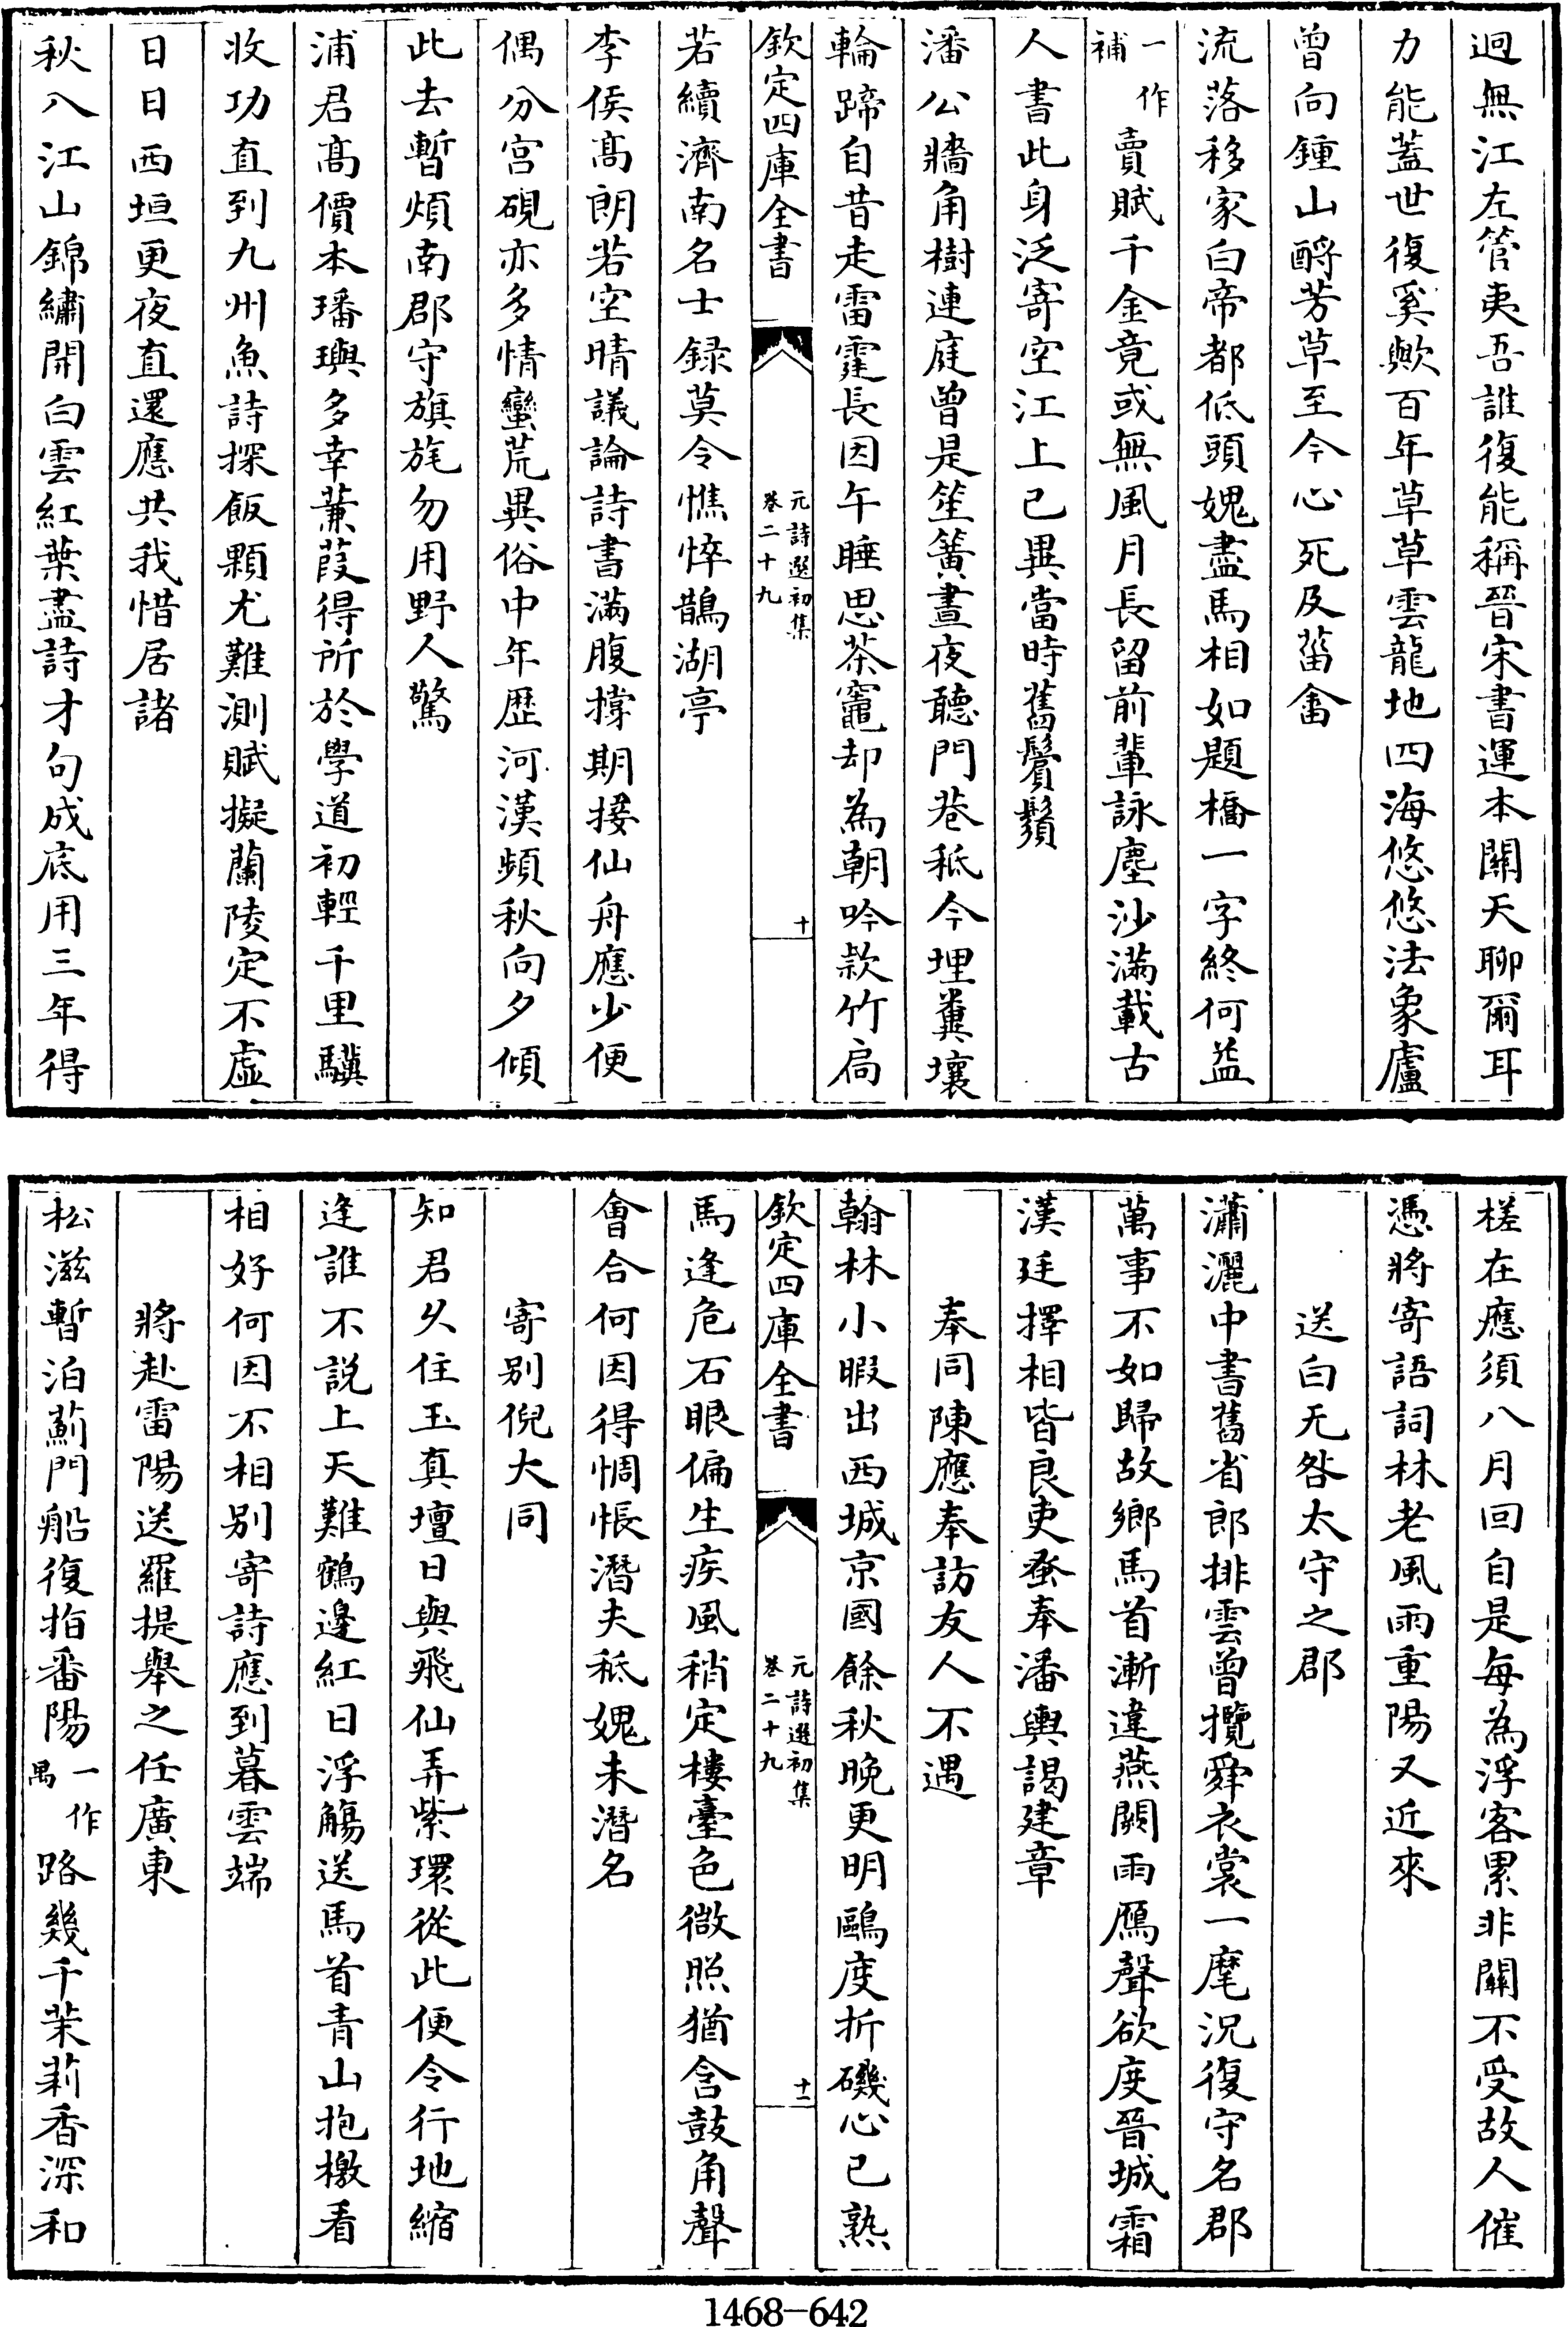 迥無江左管夷吾誰復能稱晉宋書運本關天聊爾耳
力能蓋世復奚歟百年草草雲龍地四海悠悠法象廬
曾向鍾山酹芳草至今心死及菑畬
流落移家白帝都低頭媿盡馬相如題橋一字終何益
一作補賣賦千金竟或無風月長留前輩詠塵沙滿載古
人書此身泛寄空江上已異當時舊鬢鬚
潘公牆角樹連庭曾是笙簧晝夜聽門巷秪今埋糞壤
輪蹄自昔走雷霆長因午睡思茶竈却為朝吟款竹扃
欽定四庫全書
元詩選初集
卷二十九
十
若續濟南名士録莫令憔悴鵲湖亭
李侯髙朗若空晴議論詩書滿腹撐期接仙舟應少便
偶分宫硯亦多情蠻荒異俗中年歴河漢頻秋向夕傾
此去暫煩南郡守旗旄勿用野人驚
浦君髙價本璠璵多幸蒹葭得所於學道初輕千里驥
收功直到九州魚詩探飯顆尤難測賦擬蘭陵定不虛
日日西垣更夜直還應共我惜居諸
秋入江山錦繡開白雲紅葉盡詩才句成底用三年得
槎在應須八月回自是每為浮客累非關不受故人催
憑將寄語詞林老風雨重陽又近來
送白无咎太守之郡
瀟灑中書舊省郎排雲曾攬舜衣裳一麾況復守名郡
萬事不如歸故鄉馬首漸違燕闕雨鴈聲欲度晉城霜
漢廷擇相皆良吏蚤奉潘輿謁建章
奉同陳應奉訪友人不遇
翰林小暇出西城京國餘秋晚更明鷗度折磯心已熟
欽定四庫全書
元詩選初集
卷二十九
十一
馬逢危石眼偏生疾風稍定樓臺色微照猶含鼓角聲
會合何因得惆悵潛夫秪媿未潛名
寄别倪大同
知君久住玉真壇日與飛仙弄紫環從此便令行地縮
逢誰不説上天難鶴邊紅日浮觴送馬首青山抱檄看
相好何因不相别寄詩應到暮雲端
將赴雷陽送羅提舉之任廣東
松滋暫泊薊門船復指番陽一作禺路幾千茉莉香深和
1468-642